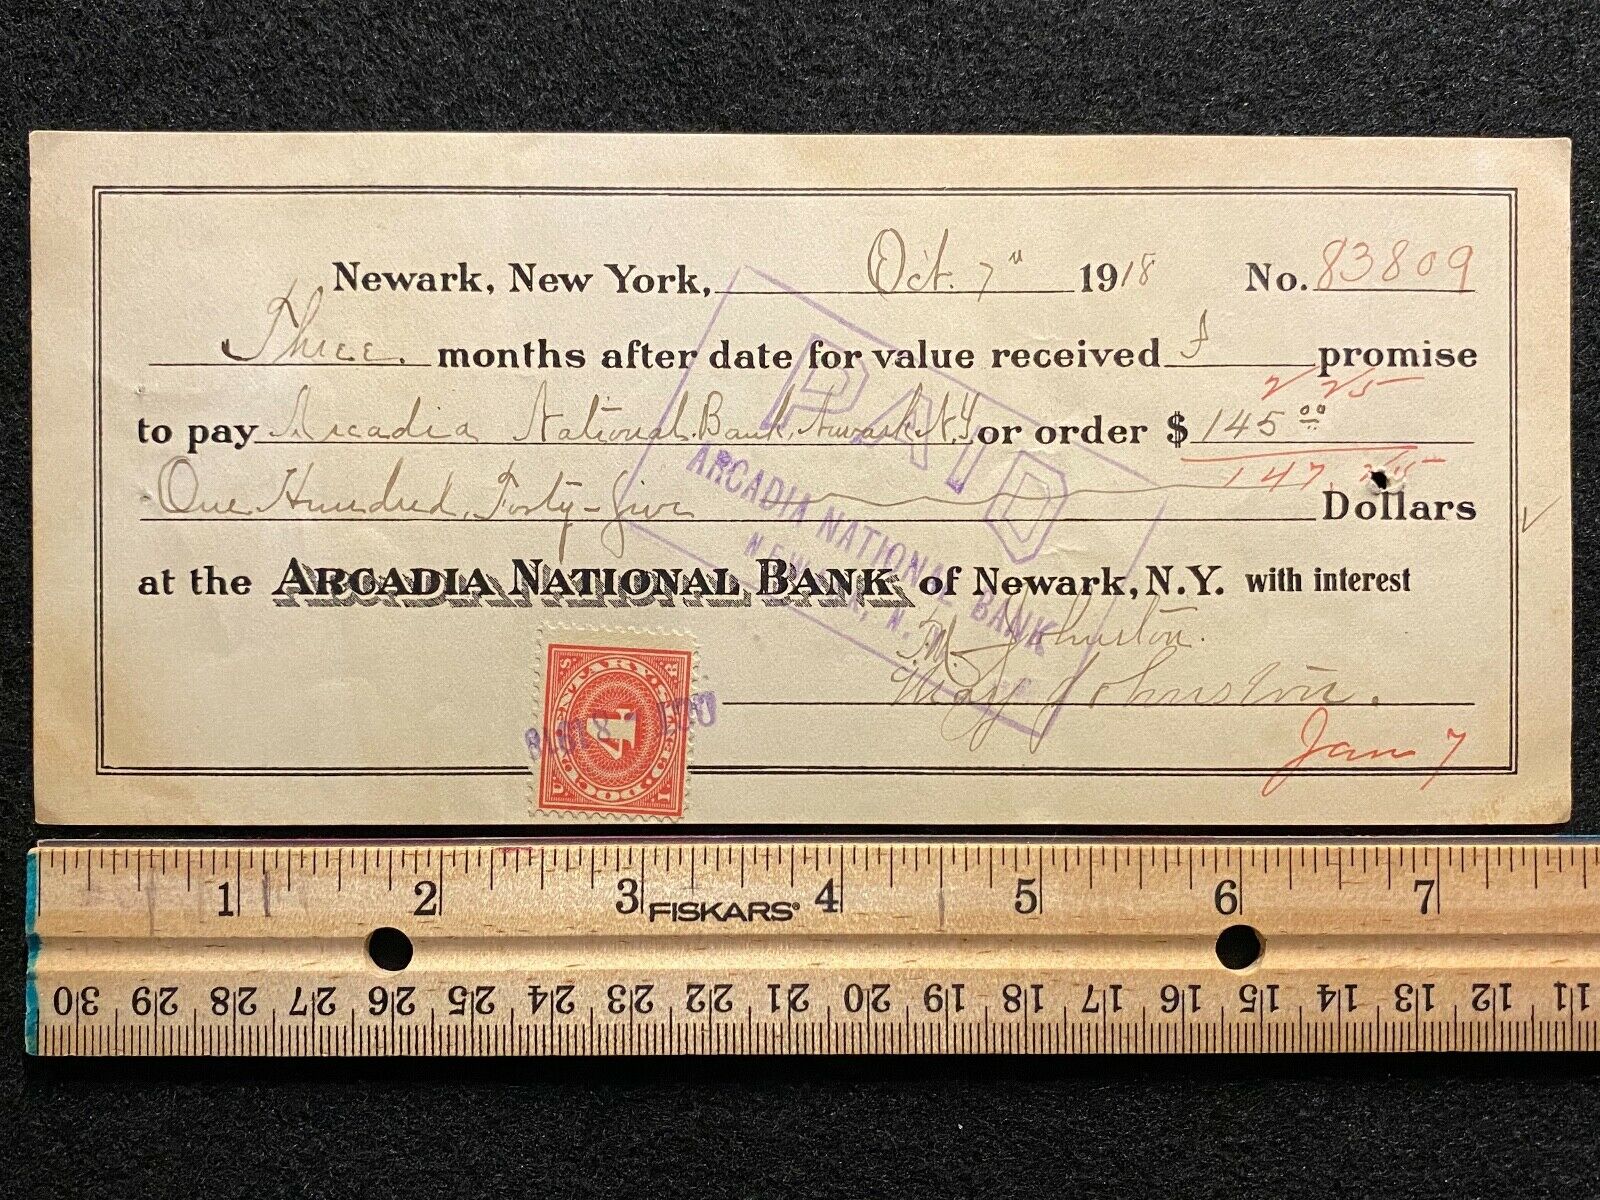 Newark, New York, Oct. 7" 1918 No. 83809
Three months after date for value received I promise
2 25
to pay Arcadia National Bank, Newark N.Y or order $ 145 00
147
One Hundred, Forty-five Dollars
at the ARCADIA NATIONAL BANK of Newark, N.Y. with interest
PAID
ARCADIA NATIONAL BANK
NEWARK, N.Y.
Johnston.
May Johnston.
Jan 7
U S DOCUMENTARY
4
1 2 3 FISKARS® 4 5 6 7
30 29 28 27 26 25 24 23 22 21 20 19 18 17 16 15 14 13 12 11